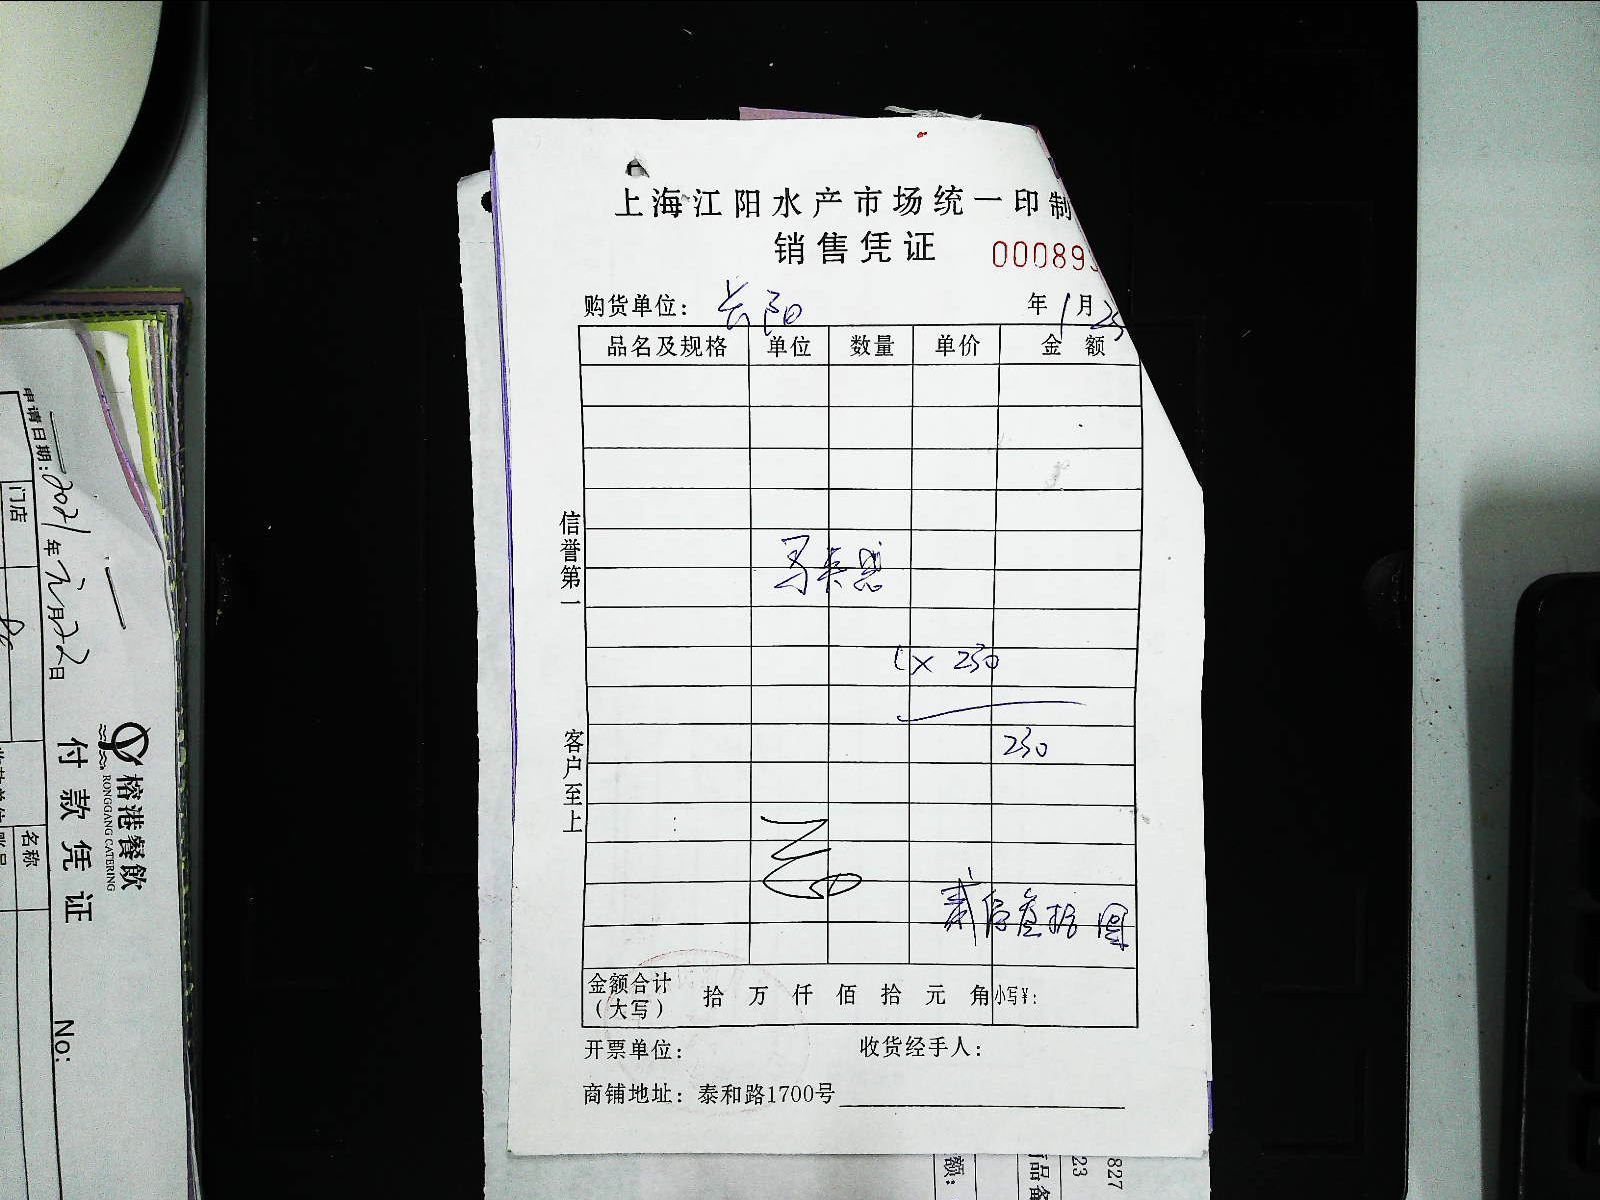 上海江阳水产市场统一印制
销售凭证 00089
购货单位：长阳 年1月25
品名及规格 单位 数量 单价 金额
信誉第一
客户至上
1×230
230
贰佰叁拾圆
金额合计（大写） 拾 万 仟 佰 拾 元 角 小写¥：
开票单位： 收货经手人：
商铺地址：泰和路1700号
申请日期：2021年元月22日
门店
名称
榕港餐飲
RONGGANG CATERING
付款凭证
No:
额：
品备
23
827